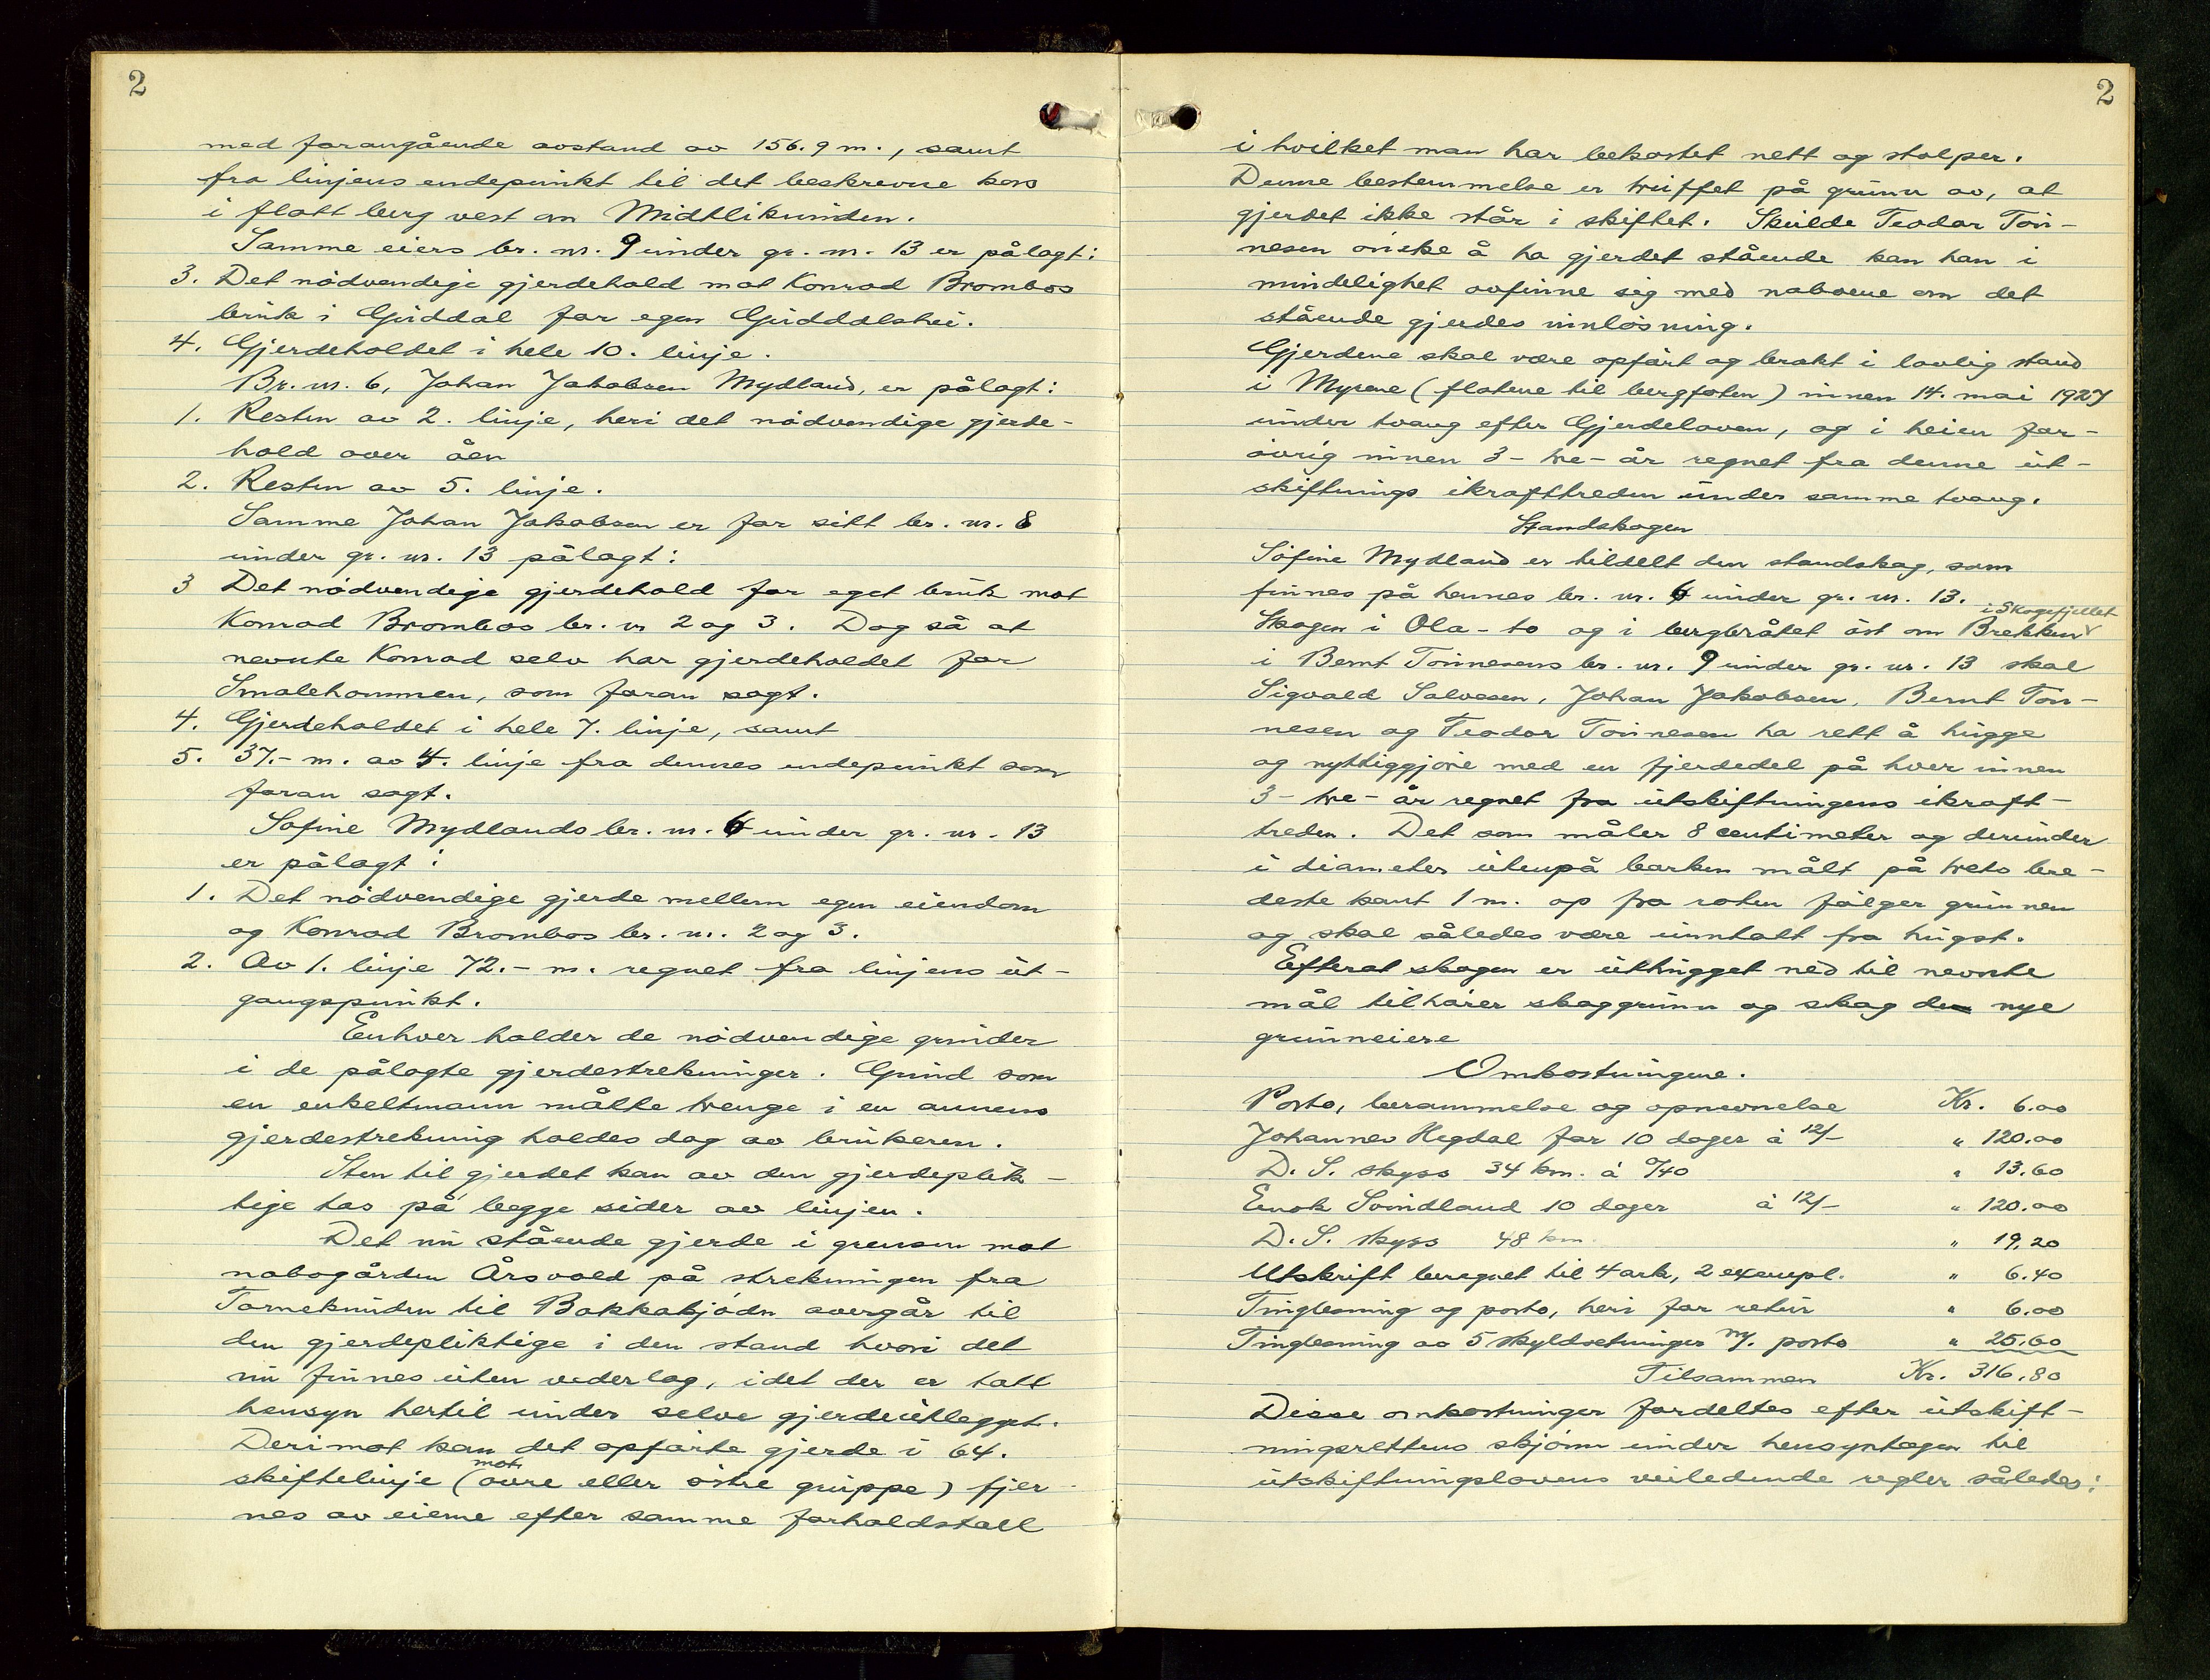 2
med forangående avstand av 156.9 m., samt
fra linjens endepunkt til det beskrevne kors
i flatt berg vest om Midtliknuden.
Samme eiers br. nr. 9 under gr. nr. 13 er pålagt:
3. Det nödvendige gjerdehold mot Konrad Brombos
bruk i Guddal for egen Guddalshei.
4. Gjerdeholdet i hele 10. linje.
Br. nr. 6, Johan Jakobsen Mydland, er pålagt:
1. Resten av 2. linje, heri det nödvendige gjerde-
hold over åen
2. Resten av 5. linje.
Samme Johan Jakobsen er for sitt br. nr. 8
under gr. nr. 13 pålagt:
3 Det nödvendige gjerdehold for eget bruk mot
Konrad Brombos br. nr 2 og 3. Dog så at
nevnte Konrad selv har gjerdeholdet for
Smalehommen, som foran sagt.
4. Gjerdeholdet i hele 7. linje, samt
5. 37.- m. av 4. linje fra dennes endepunkt som
foran sagt.
Sofine Mydlands br. nr. 6 under gr. nr. 13
er pålagt:
1. Det nödvendige gjerde mellem egen eiendom
og Konrad Brombos br. nr. 2 og 3.
2. Av 1. linje 72.- m. regnet fra linjens ut-
gangspunkt.
Enhver holder de nödvendige grinder
i de pålagte gjerdestrekninger. Grind som
en enkeltmann måtte trenge i en annens
gjerdestrekning holdes dog av brukeren.
Sten til gjerdet kan av den gjerdeplik-
tige tas på begge sider av linjen.
Det nu stående gjerde i grensen mot
nabogården Årsvold på strekningen fra
Torneknuden til Bakkatjödn overgår til
den gjerdepliktige i den stand hvori det
nu finnes uten vederlag, idet der er tatt
hensyn hertil under selve gjerdeutlegget.
Derimot kan det opförte gjerde i 64.
skiftelinje (mot övre eller östre gruppe) fjer-
nes av eierne efter samme forholdstall
2
i hvilket man har bekostet nett og stolper.
Denne bestemmelse er truffet på grunn av, at
gjerdet ikke står i skiftet. Skulde Teodor Tön-
nesen önske å ha gjerdet stående kan han i
mindelighet avfinne sig med naboene om det
stående gjerdes innlösning.
Gjerdene skal være opfört og brakt i lovlig stand
i Myrene (flatene til bergfoten) innen 14. mai 1927
under tvang efter Gjerdeloven, og i heien for-
övrig innen 3- tre- år regnet fra denne ut-
skiftnings ikrafttreden under samme tvang.
Standskogen
Sofine Mydland er tildelt den standskog, som
finnes på hennes br. nr. 6 under gr. nr. 13.
Skogen i Ola-to og i bergbråtet öst om Brekken i Skogefjellet
i Bernt Tönnesens br. nr. 9 under gr. nr. 13 skal
Sigvald Salvesen, Johan Jakobsen, Bernt Tön-
nesen og Teodor Tönnesen ha rett å hugge
og nyttiggjöre med en fjerdedel på hver innen
3- tre- år regnet fra utskiftningens ikraft-
treden. Det som måler 8 centimeter og derunder
i diameter utenpå barken målt på trets bre-
deste kant 1 m. op fra roten fölger grunnen
og skal således være unntatt fra hugst.
Efterat skogen er uthugget ned til nevnte
mål tilhörer skoggrunn og skog de nye
grunneiere
Omkostningene.
Porto, berammelse og opnevnelse Kr. 6.00
Johannes Hegdal for 10 dager à 12/- " 120.00
D. S. skyss 34 km. à 0/40 " 13.60
Enok Svindland 10 dager à 12/- " 120.00
D. S. skyss 48 km. " 19.20
Utskrift beregnet til 4 ark, 2 exempl. " 6.40
Tinglesning og porto, heri for retur " 6.00
Tinglesning av 5 skyldsetninger m/. porto " 25.60
Tilsammen Kr. 316.80
Disse omkostninger fordeltes efter utskift-
ningsrettens skjönn under hensyntagen til
utskiftningslovens veiledende regler således: